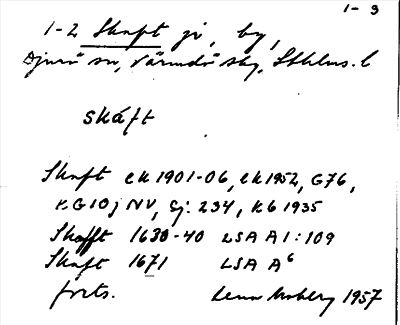 1-3
1-2 Skaft gd, by,
Djurö sn, Värmdö sky, Sthlms. l
skáft
Skaft ek 1901-06, ek 1952, G76,
r.G10j NV, Gj. 234, Kb 1935
Skafft 1630-40 LSA A1:109
Skaft 1671 LSA A6
forts. Lena Moberg 1957